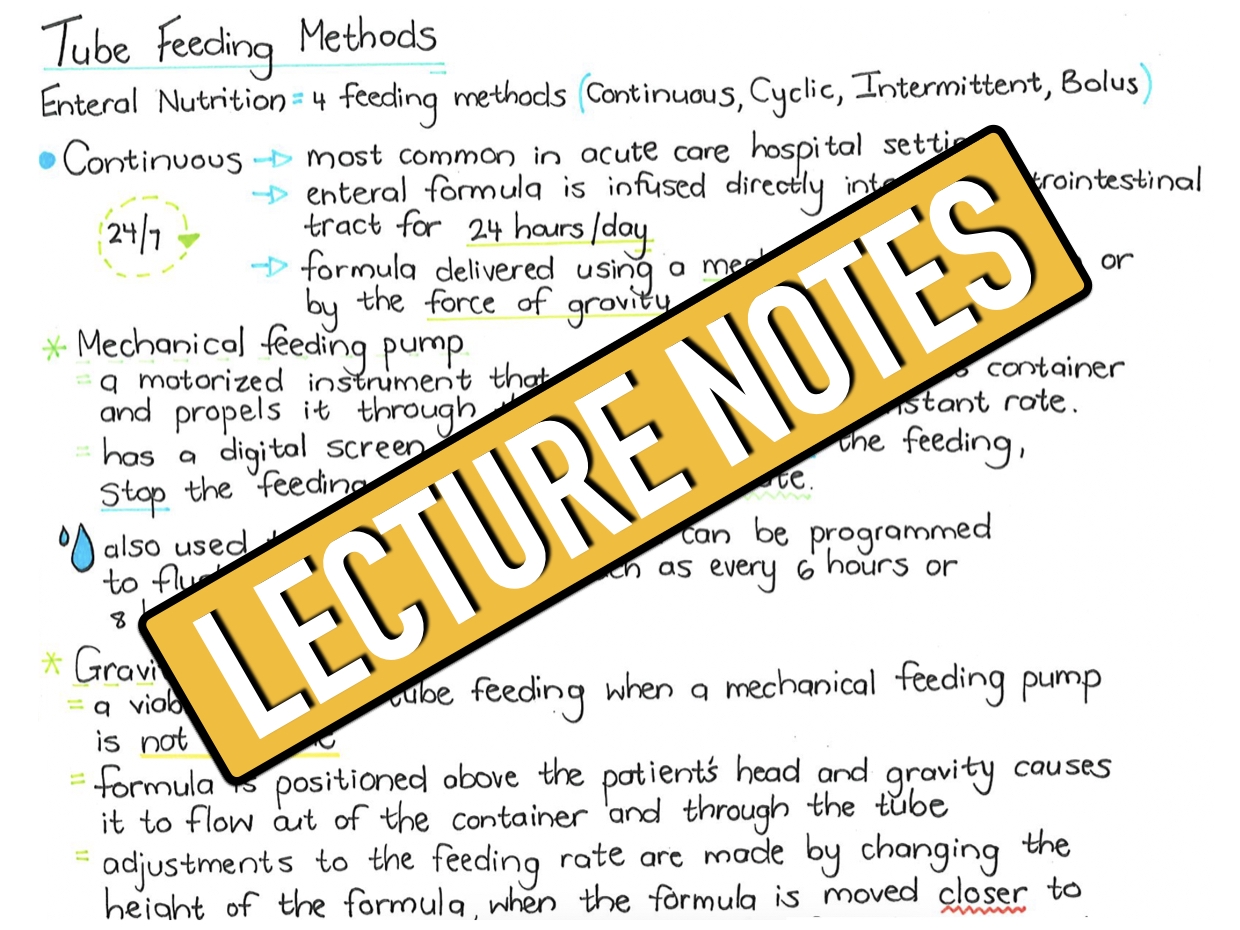 Tube Feeding Methods
Enteral Nutrition = 4 feeding methods (Continuous, Cyclic, Intermittent, Bolus)
Continuous → most common in acute care hospital
→ enteral formula is infused directly
24/7
tract for 24 hours/day
→ formula delivered using a or
by the force of gravity
* Mechanical feeding pump
= a motorized instrument container
and propels it through rate.
= has a digital screen the feeding,
Stop the feeding
also used can be programmed
to as every 6 hours or
8
*
= a tube feeding when a mechanical feeding pump
is not
= formula is positioned above the patient's head and gravity causes
it to flow out of the container and through the tube
= adjustments to the feeding rate are made by changing the
height of the formula, when the formula is moved closer to
LECTURE NOTES